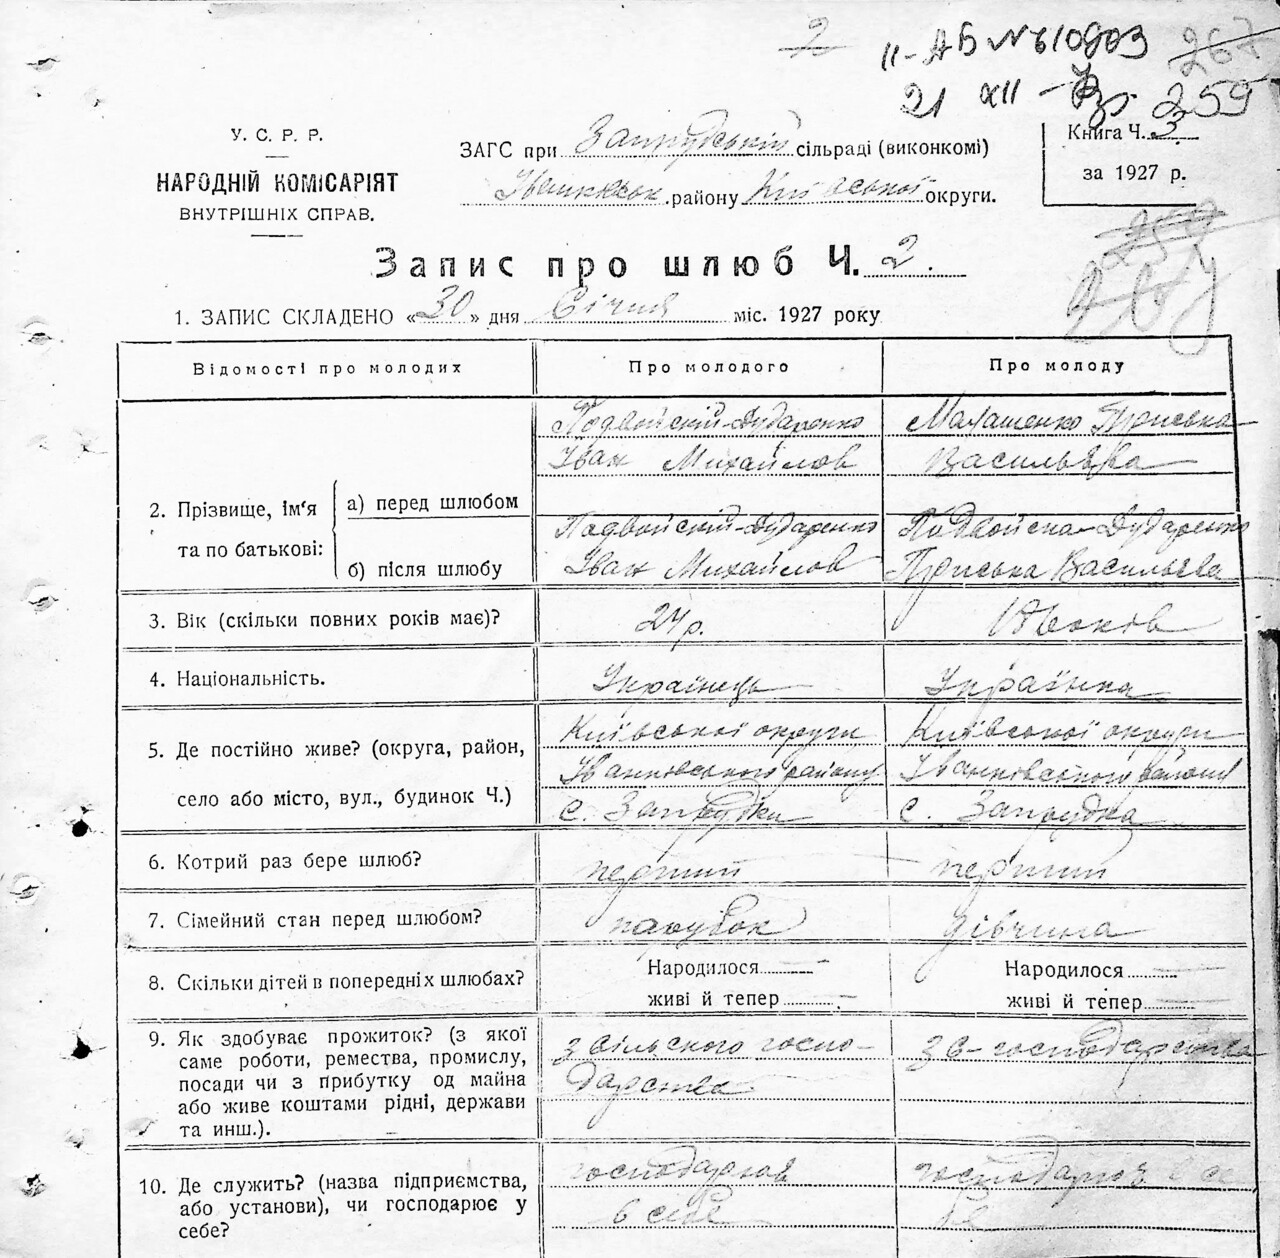 2
II-АБ № 610903 267
21 XII - 259
У. С. Р. Р.
НАРОДНІЙ КОМІСАРІЯТ
ВНУТРІШНІХ СПРАВ.
ЗАГС при Запрудській сільраді (виконкомі)
Іванківськ. району Київської округи.
Книга Ч. 3
за 1927 р.
Запис про шлюб Ч. 2.
1. ЗАПИС СКЛАДЕНО «30» дня Січня міс. 1927 року
Відомості про молодих Про молодого Про молоду
2. Прізвище, ім'я та по батькові:
а) перед шлюбом
Подвойскій-Дударенко
Іван Михайлов
Малашенко Приська
Васильєва
б) після шлюбу
Падвойскій-Дударенко
Іван Михайлов
Подвойска-Дударенко
Приська Васильєва
3. Вік (скільки повних років має)? 24 р. 18 роков
4. Національність. Українець Українка
5. Де постійно живе? (округа, район,
село або місто, вул., будинок Ч.)
Київської округи
Іванківського району
с. Запрудка
Київської округи
Іванківського району
с. Запрудка
6. Котрий раз бере шлюб? перший перший
7. Сімейний стан перед шлюбом? парубок дівчина
8. Скільки дітей в попередніх шлюбах?
Народилося —
живі й тепер —
Народилося —
живі й тепер —
9. Як здобуває прожиток? (з якої
саме роботи, ремества, промислу,
посади чи з прибутку од майна
або живе коштами рідні, держави
та инш.).
з сільского госпо-
дарства
з с-господарства
10. Де служить? (назва підприємства,
або установи), чи господарює у
себе?
господарюв
в себе
господарює